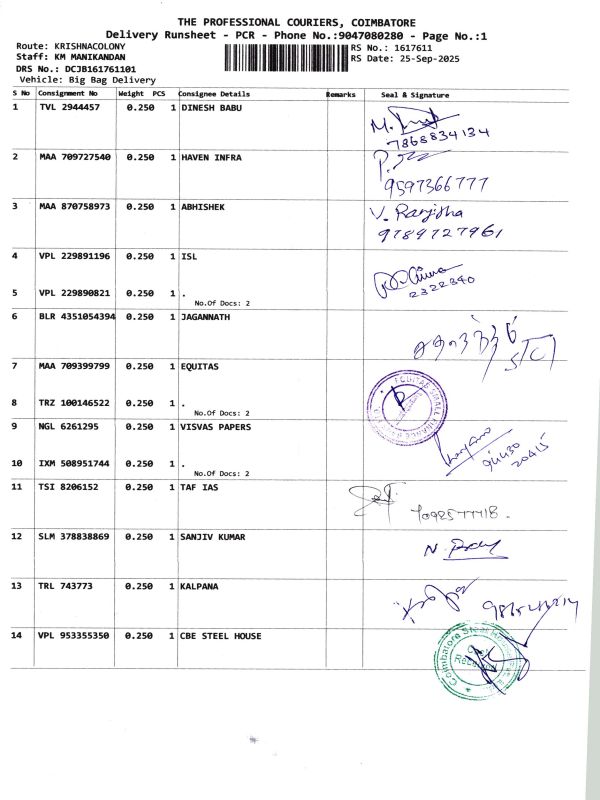 THE PROFESSIONAL COURIERS, COIMBATORE
Delivery Runsheet - PCR - Phone No.:9047080280 - Page No.:1
Route: KRISHNACOLONY
Staff: KM MANIKANDAN
DRS No.: DCJB161761101
Vehicle: Big Bag Delivery
RS No.: 1617611
RS Date: 25-Sep-2025
S No Consignment No Weight PCS Consignee Details Remarks Seal & Signature
1 TVL 2944457 0.250 1 DINESH BABU
7868834134
2 MAA 709727540 0.250 1 HAVEN INFRA
9597366777
3 MAA 870758973 0.250 1 ABHISHEK V. Ranjitha
9789727961
4 VPL 229891196 0.250 1 ISL
2322340
5 VPL 229890821 0.250 1 .
No.Of Docs: 2
6 BLR 4351054394 0.250 1 JAGANNATH
7 MAA 709399799 0.250 1 EQUITAS
8 TRZ 100146522 0.250 1 .
No.Of Docs: 2
9 NGL 6261295 0.250 1 VISVAS PAPERS
94430
20415
10 IXM 508951744 0.250 1 .
No.Of Docs: 2
11 TSI 8206152 0.250 1 TAF IAS
12 SLM 378838869 0.250 1 SANJIV KUMAR
13 TRL 743773 0.250 1 KALPANA
14 VPL 953355350 0.250 1 CBE STEEL HOUSE